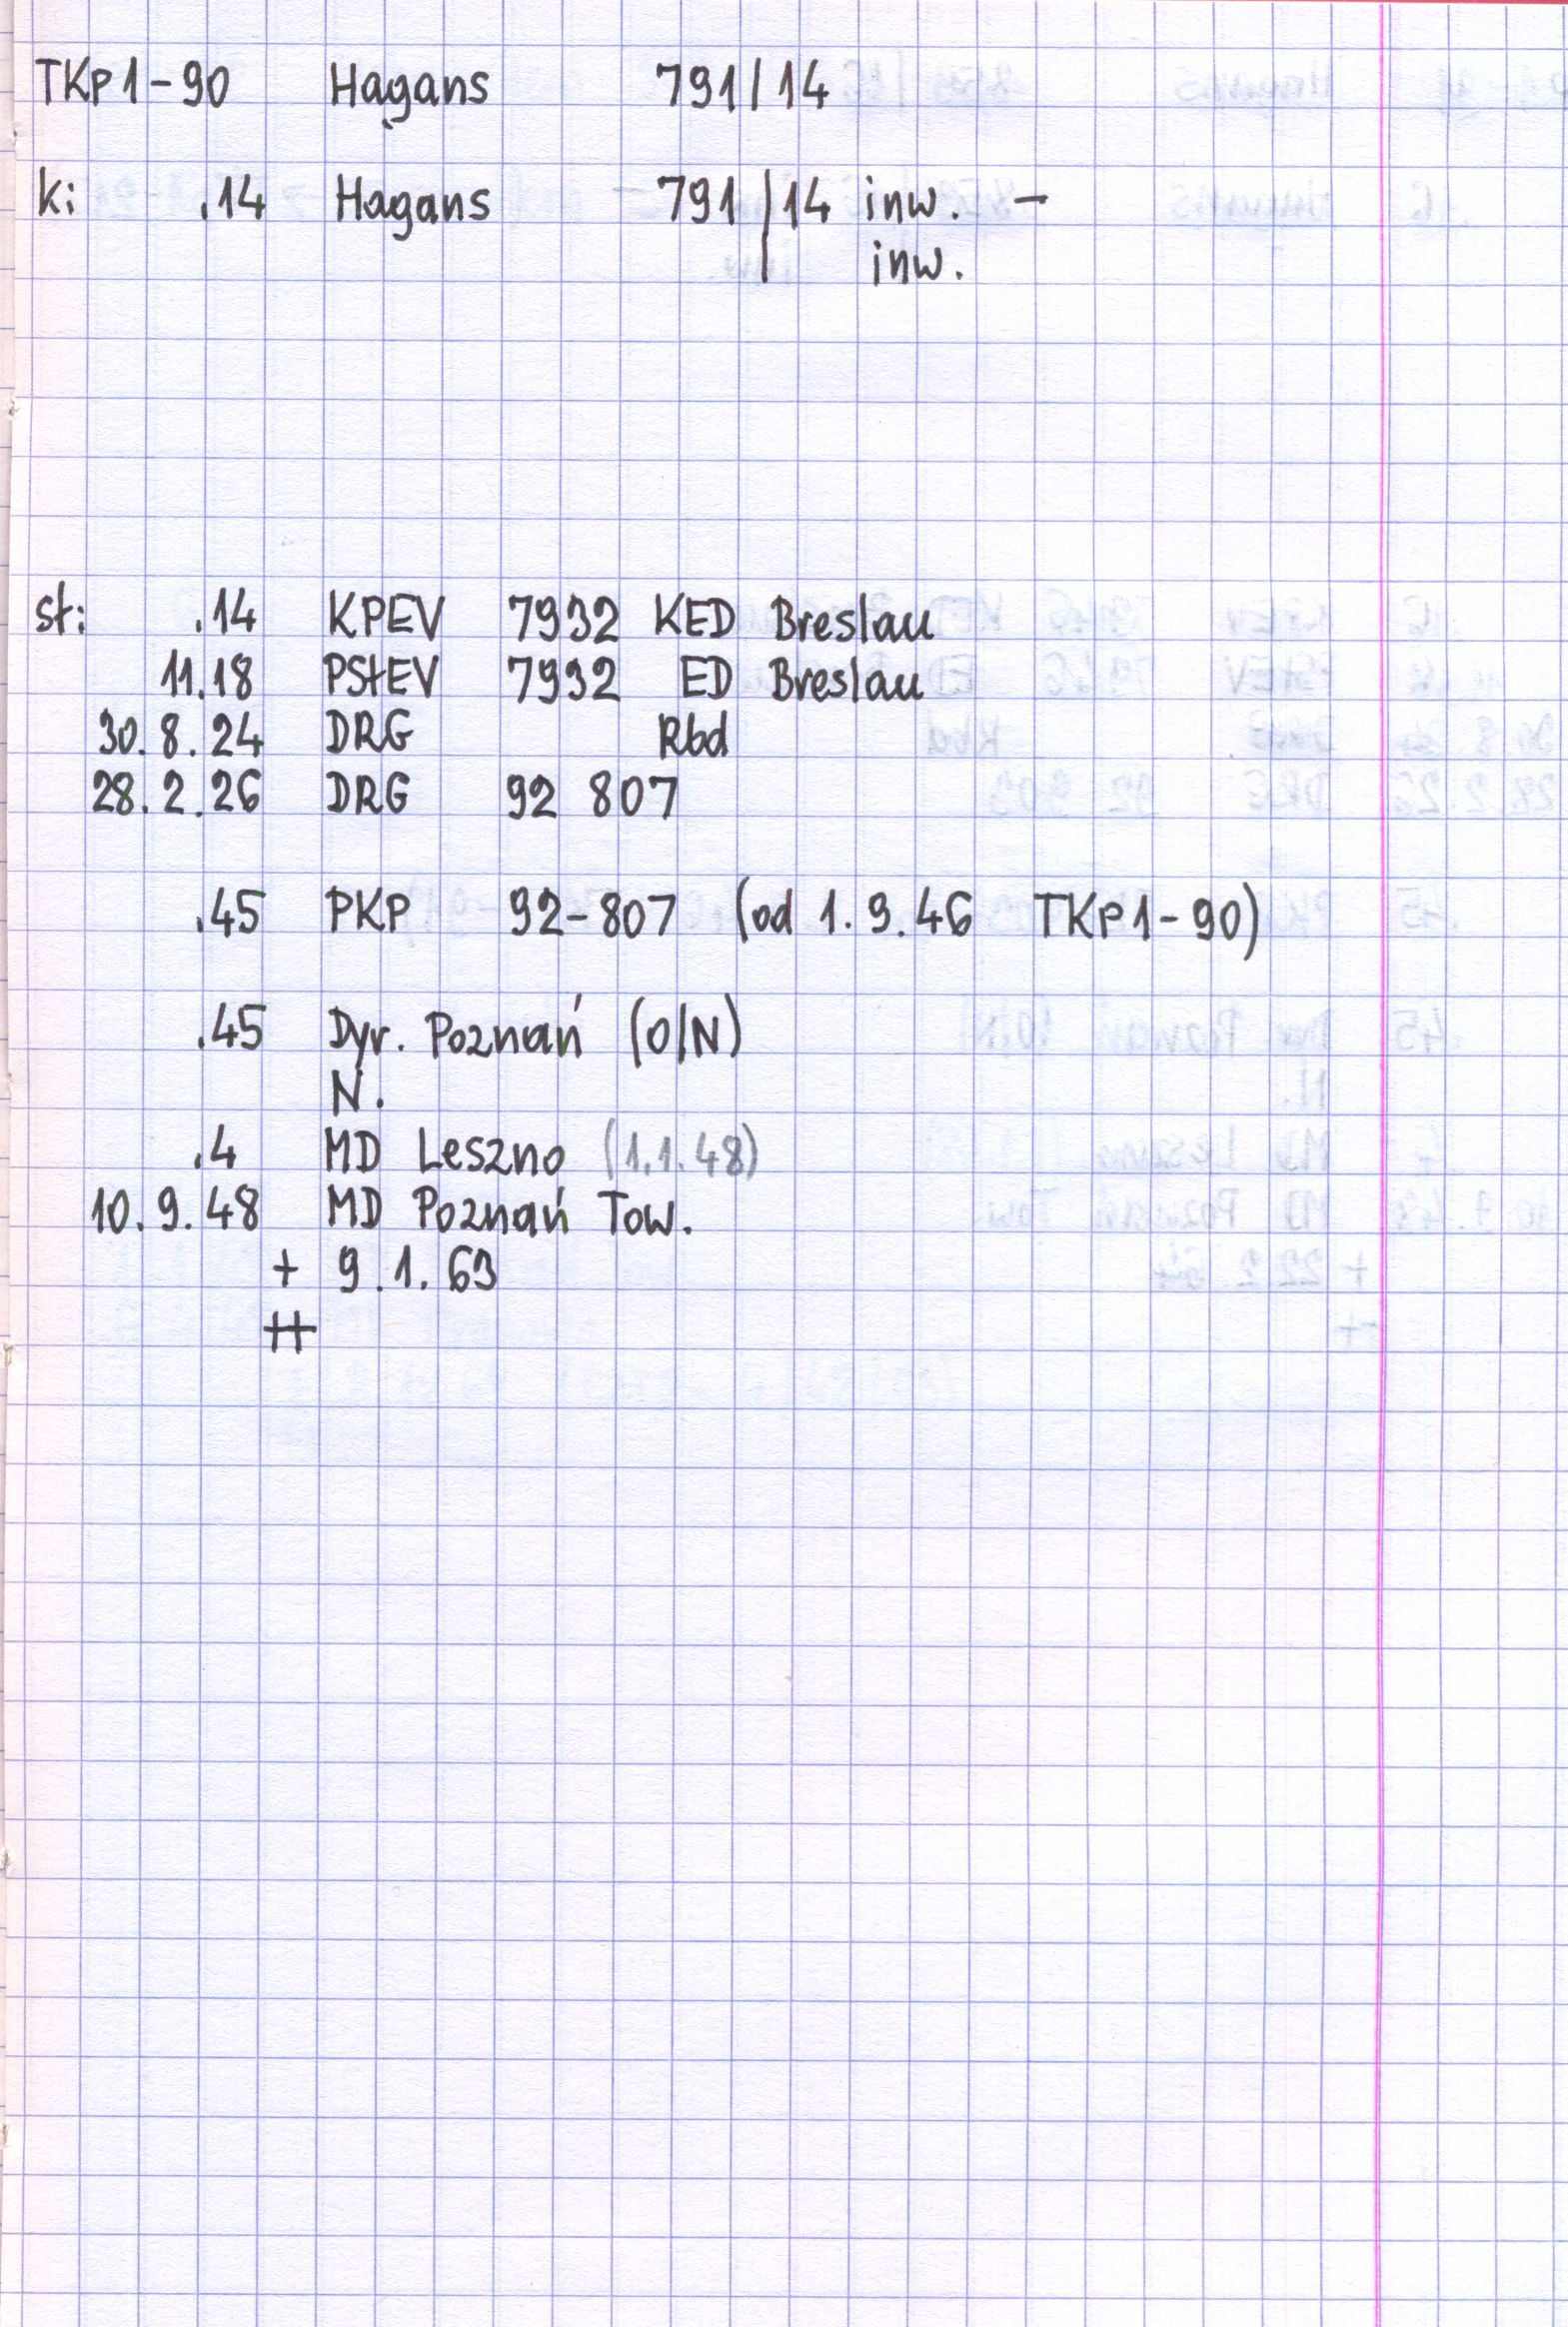 TKp1-90 Hagans 791/14
k: .14 Hagans 791/14 inw. -
inw.
st: .14 KPEV 7932 KED Breslau
11.18 PStEV 7932 ED Breslau
30.8.24 DRG Rbd
28.2.26 DRG 92 807
.45 PKP 92-807 (od 1.9.46 TKp1-90)
.45 Dyr. Poznań (O/N)
N.
.4 MD Leszno (1.1.48)
10.9.48 MD Poznań Tow.
+ 9.1.63
++